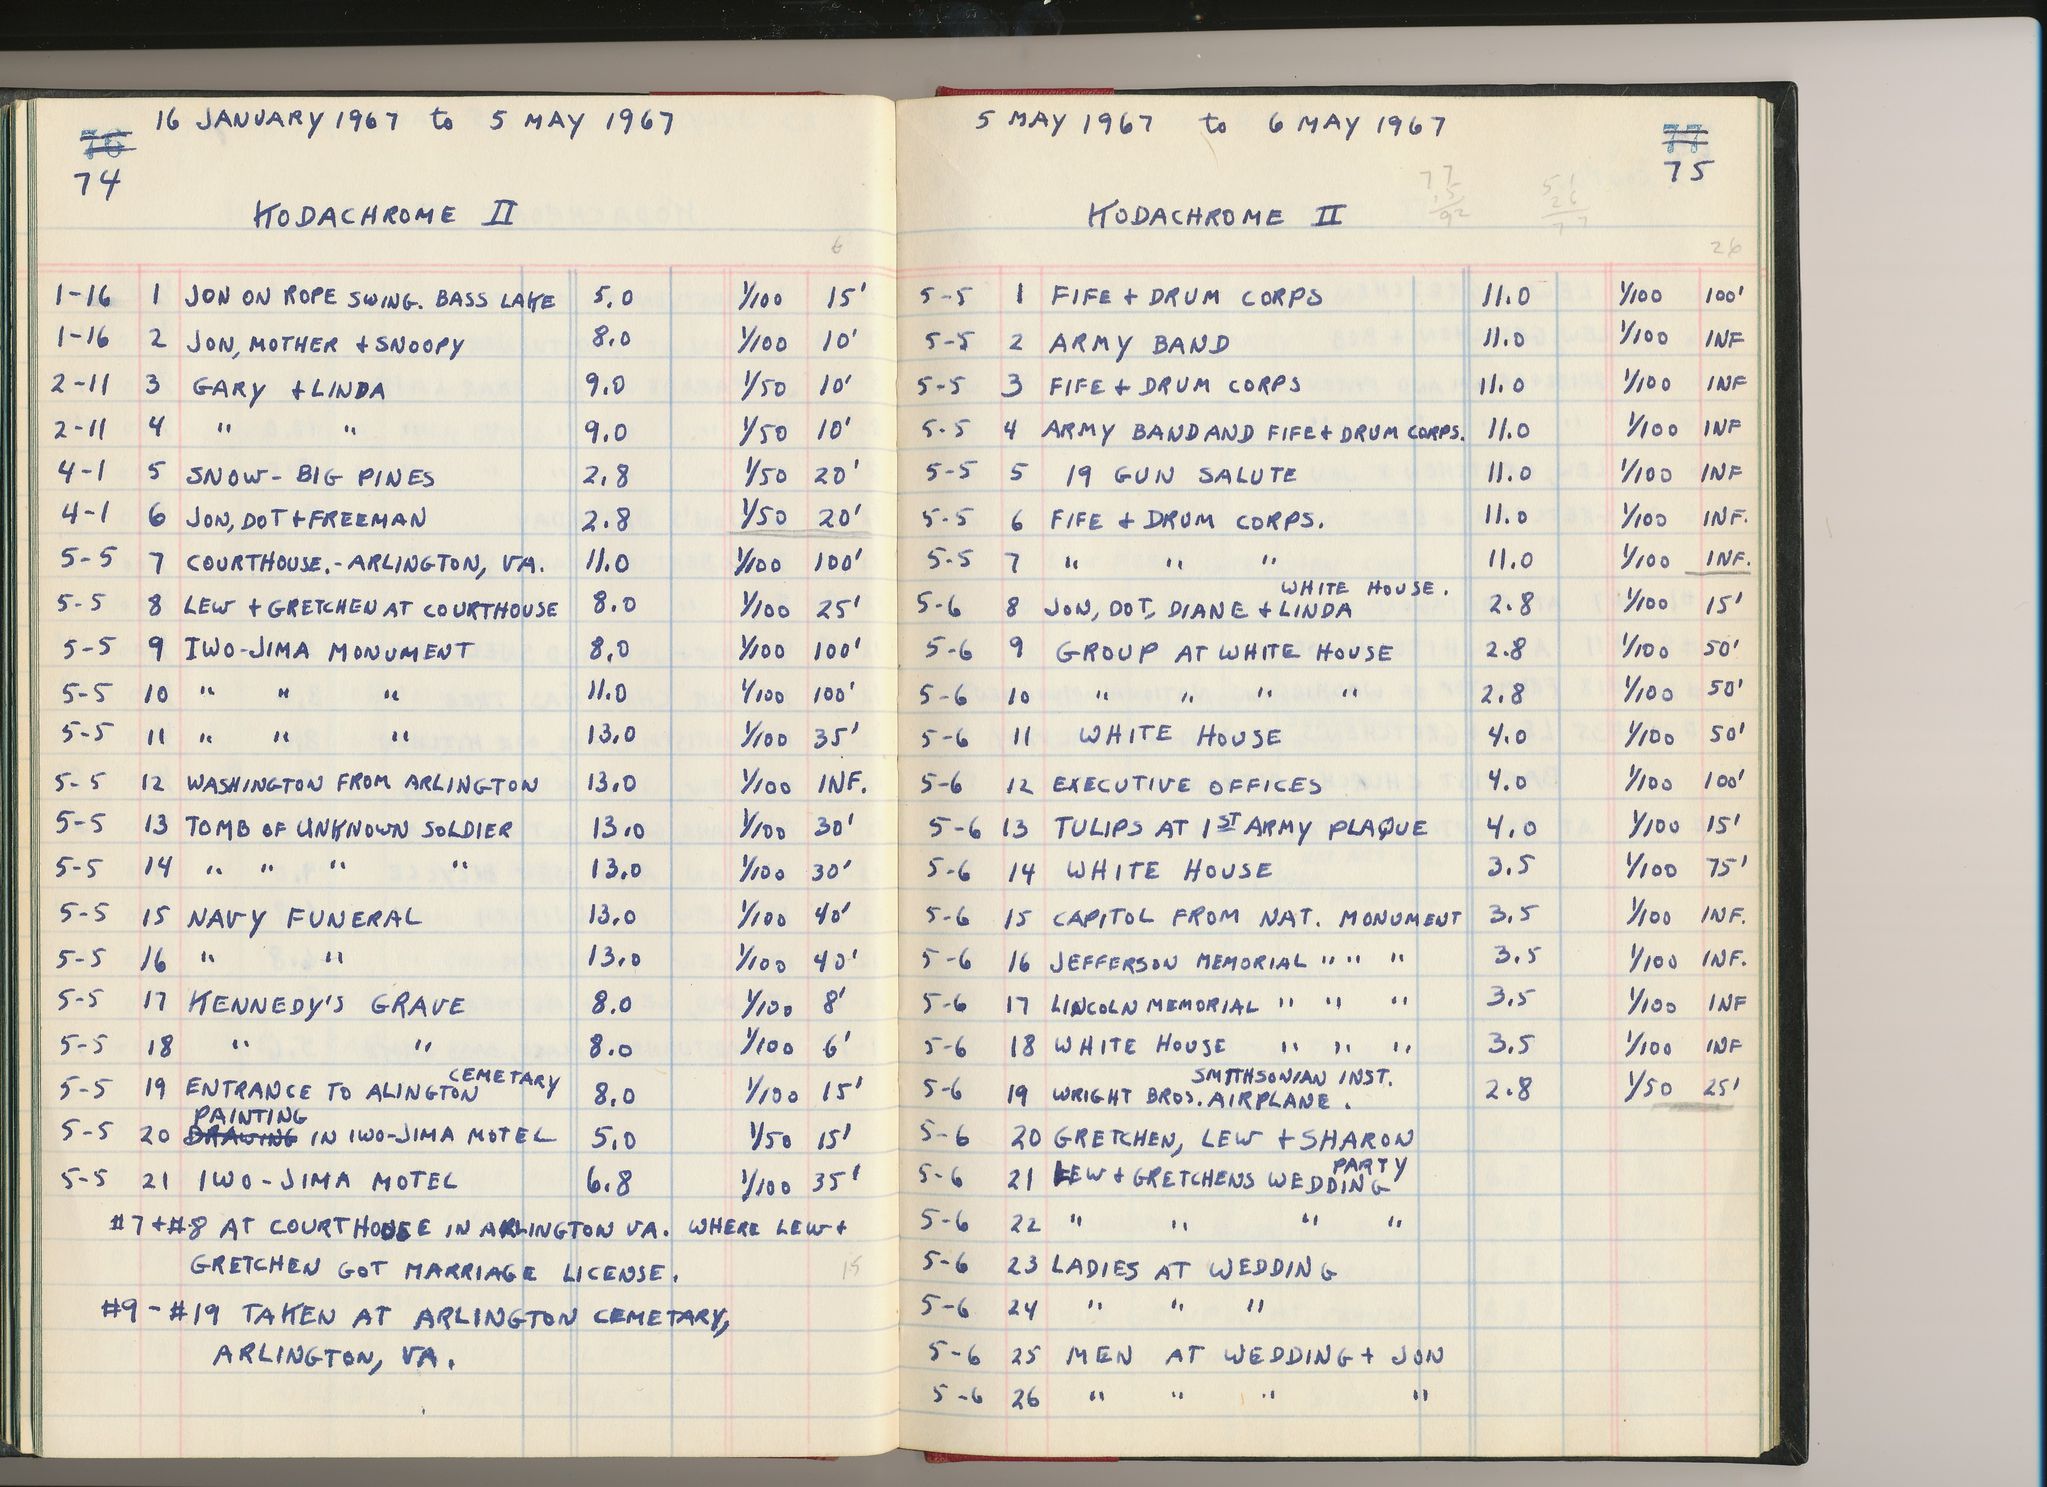 16 JANUARY 1967 to 5 MAY 1967
76
74
KODACHROME II
6
1-16 1 JON ON ROPE SWING. BASS LAKE 5.0 1/100 15'
1-16 2 JON, MOTHER + SNOOPY 8.0 1/100 10'
2-11 3 GARY + LINDA 9.0 1/50 10'
2-11 4 " " 9.0 1/50 10'
4-1 5 SNOW- BIG PINES 2.8 1/50 20'
4-1 6 JON, DOT + FREEMAN 2.8 1/50 20'
5-5 7 COURTHOUSE.- ARLINGTON, VA. 11.0 1/100 100'
5-5 8 LEW + GRETCHEN AT COURTHOUSE 8.0 1/100 25'
5-5 9 IWO-JIMA MONUMENT 8.0 1/100 100'
5-5 10 " " " 11.0 1/100 100'
5-5 11 " " " 13.0 1/100 35'
5-5 12 WASHINGTON FROM ARLINGTON 13.0 1/100 INF.
5-5 13 TOMB OF UNKNOWN SOLDIER 13.0 1/100 30'
5-5 14 " " " " 13.0 1/100 30'
5-5 15 NAVY FUNERAL 13.0 1/100 40'
5-5 16 " " 13.0 1/100 40'
5-5 17 KENNEDY'S GRAVE 8.0 1/100 8'
5-5 18 " " 8.0 1/100 6'
5-5 19 ENTRANCE TO ALINGTON CEMETARY 8.0 1/100 15'
5-5 20 DRAWING PAINTING IN IWO-JIMA MOTEL 5.0 1/50 15'
5-5 21 IWO-JIMA MOTEL 6.8 1/100 35'
#7 + #8 AT COURTHOUSE IN ARLINGTON VA. WHERE LEW +
GRETCHEN GOT MARRIAGE LICENSE. 15
#9 - #19 TAKEN AT ARLINGTON CEMETARY,
ARLINGTON, VA.
5 MAY 1967 to 6 MAY 1967
77
75
KODACHROME II
26
5-5 1 FIFE + DRUM CORPS 11.0 1/100 100'
5-5 2 ARMY BAND 11.0 1/100 INF
5-5 3 FIFE + DRUM CORPS 11.0 1/100 INF
5-5 4 ARMY BAND AND FIFE + DRUM CORPS. 11.0 1/100 INF
5-5 5 19 GUN SALUTE 11.0 1/100 INF
5-5 6 FIFE + DRUM CORPS. 11.0 1/100 INF.
5-5 7 " " " 11.0 1/100 INF.
5-6 8 JON, DOT, DIANE + LINDA WHITE HOUSE. 2.8 1/100 15'
5-6 9 GROUP AT WHITE HOUSE 2.8 1/100 50'
5-6 10 " " " " 2.8 1/100 50'
5-6 11 WHITE HOUSE 4.0 1/100 50'
5-6 12 EXECUTIVE OFFICES 4.0 1/100 100'
5-6 13 TULIPS AT 1ST ARMY PLAQUE 4.0 1/100 15'
5-6 14 WHITE HOUSE 3.5 1/100 75'
5-6 15 CAPITOL FROM NAT. MONUMENT 3.5 1/100 INF.
5-6 16 JEFFERSON MEMORIAL " " " 3.5 1/100 INF.
5-6 17 LINCOLN MEMORIAL " " " 3.5 1/100 INF
5-6 18 WHITE HOUSE " " " 3.5 1/100 INF
5-6 19 WRIGHT BROS. AIRPLANE. SMITHSONIAN INST. 2.8 1/50 25'
5-6 20 GRETCHEN, LEW + SHARON
5-6 21 LEW + GRETCHENS WEDDING PARTY
5-6 22 " " " "
5-6 23 LADIES AT WEDDING
5-6 24 " " "
5-6 25 MEN AT WEDDING + JON
5-6 26 " " " "